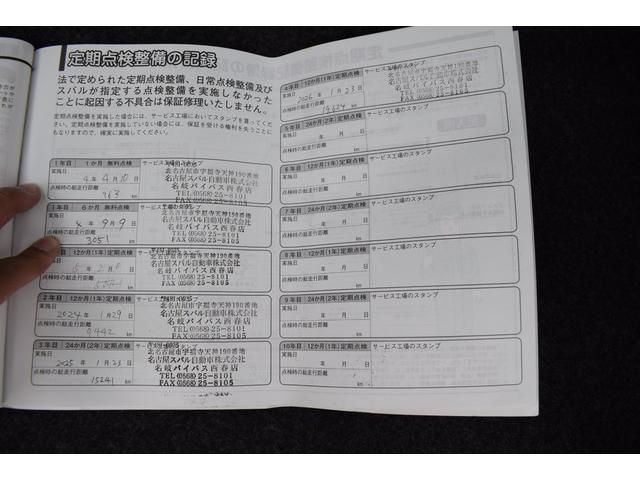 定期点検整備の記録
法で定められた定期点検整備、日常点検整備及び
スバルが指定する点検整備を実施しなかった
ことに起因する不具合は保証修理いたしません。
定期点検整備を実施した場合には、サービス工場においてスタンプを貰ってください。
定期点検整備を実施していない場合には、保証を受ける権利を失うことに
もなりますので、確実に実施してください。
1年目 1か月 無料点検 サービス工場のスタンプ
実施日 4年 4月 10日
点検時の総走行距離 963 km
北名古屋市宇福寺天神190番地
名古屋スバル自動車株式会社
名岐バイパス西春店
TEL(0568)25-8101
FAX(0568)25-8105
1年目 6か月 無料点検
実施日 4年 9月 9日
点検時の総走行距離 3051 km
北名古屋市宇福寺天神190番地
名古屋スバル自動車株式会社
名岐バイパス西春店
TEL(0568)25-8101
FAX(0568)25-8105
12か月(1年)定期点検
5年 2月 日
点検時の総走行距離 km
北名古屋市宇福寺天神190番地
名古屋スバル自動車株式会社
名岐バイパス西春店
TEL(0568)25-8101
FAX(0568)25-8105
2年目 12か月(1年)定期点検
実施日 2024年 1月 29日
点検時の総走行距離 9442 km
北名古屋市宇福寺天神190番地
名古屋スバル自動車株式会社
名岐バイパス西春店
TEL(0568)25-8101
FAX(0568)25-8105
3年目 24か月(2年)定期点検
実施日 2025年 1月 23日
点検時の総走行距離 15241 km
北名古屋市宇福寺天神190番地
名古屋スバル自動車株式会社
名岐バイパス西春店
TEL(0568)25-8101
FAX(0568)25-8105
4年目 12か月(1年)定期点検 サービス工場のスタンプ
実施日 2026年 1月 23日
点検時の総走行距離 km
北名古屋市宇福寺天神190番地
名古屋スバル自動車株式会社
名岐バイパス西春店
TEL(0568)25-8101
FAX(0568)25-8105
5年目 24か月(2年)定期点検 サービス工場のスタンプ
実施日 年 月 日
点検時の総走行距離 km
6年目 12か月(1年)定期点検 サービス工場のスタンプ
実施日 年 月 日
点検時の総走行距離 km
7年目 24か月(2年)定期点検 サービス工場のスタンプ
実施日 年 月 日
点検時の総走行距離 km
8年目 12か月(1年)定期点検 サービス工場のスタンプ
実施日 年 月 日
点検時の総走行距離 km
9年目 24か月(2年)定期点検 サービス工場のスタンプ
実施日 年 月 日
点検時の総走行距離 km
10年目 12か月(1年)定期点検 サービス工場のスタンプ
実施日 年 月 日
点検時の総走行距離 km